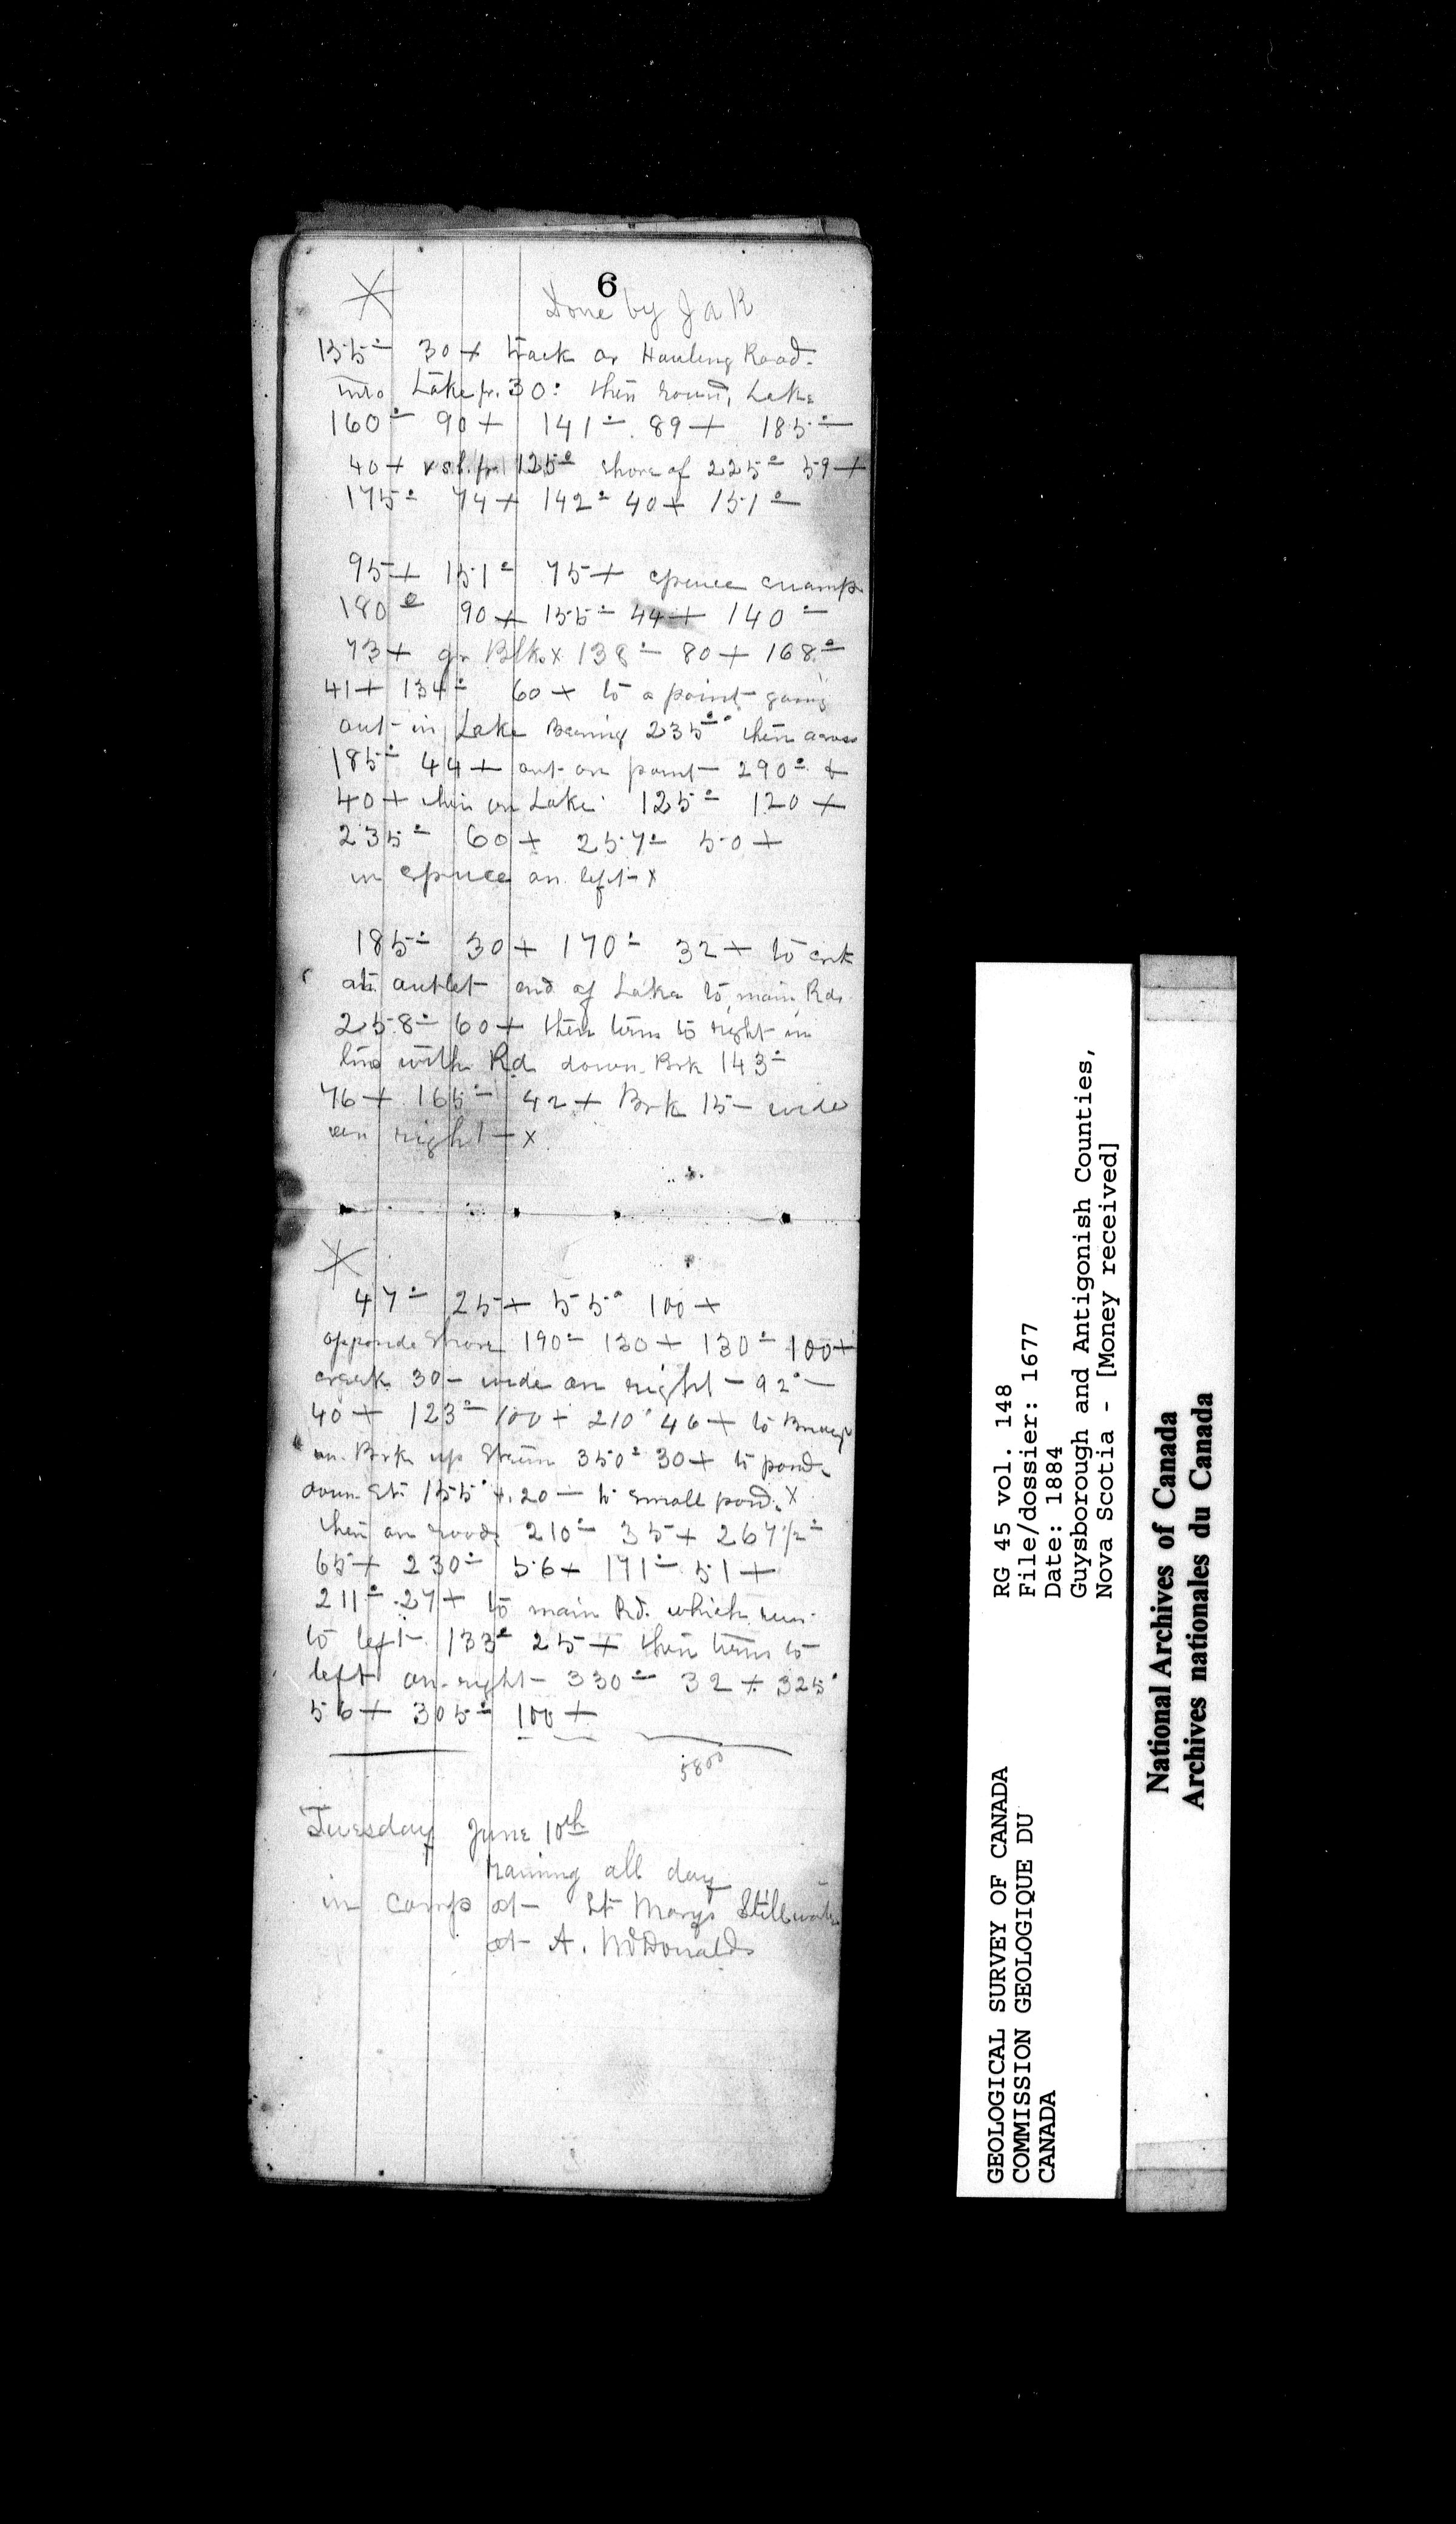 6
Done by J a R
155° 30 + Track or Hauling Road.
into Lake fr. 30: then round Lake
160° 90 + 141° 89 + 185°
40 + 125° shore of 225° 59 +
175° 74 + 142° 40 + 151°
95 + 151° 75 + spruce swamp
180° 90 + 155° 44 + 140°
73 + gr Blk. x 138° 80 + 168°
41 + 134° 60 + to a point going
out in Lake Bearing 235° then across
185° 44 + out on point 290° &
40 + then on Lake 125° 120 +
235° 60 + 257° 50 +
in spruce on left x
185° 30 + 170° 32 + to
at outlet end of Lake to main Rd.
258° 60 + then turns to right in
line with Rd. down Brk 143°
76 + 165° 42 + Brk 15 - wide
on right x
47° 25 + 55° 100 +
opposite shore 190° 130 + 130° 100 +
creek 30 - wide on right - 92°
40 + 123° 100 + 210° 46 + to
on Brk up Stream 350° 30 + to pond
down St. 155° + 20 - to small pond. x
then on road 210° 35 + 267½°
65 + 230° 56 + 191° 51 +
211° 27 + to main Rd. which runs
to left 133° 25 + then turns to
left on right 330° 32 + 325°
56 + 305° 100 +
5800
Tuesday June 10th
raining all day
in camp at St Marys Stillwater
at A. McDonalds
RG 45 vol. 148
File/dossier: 1677
Date: 1884
Guysborough and Antigonish Counties,
Nova Scotia - [Money received]
GEOLOGICAL SURVEY OF CANADA
COMMISSION GEOLOGIQUE DU
CANADA
National Archives of Canada
Archives nationales du Canada